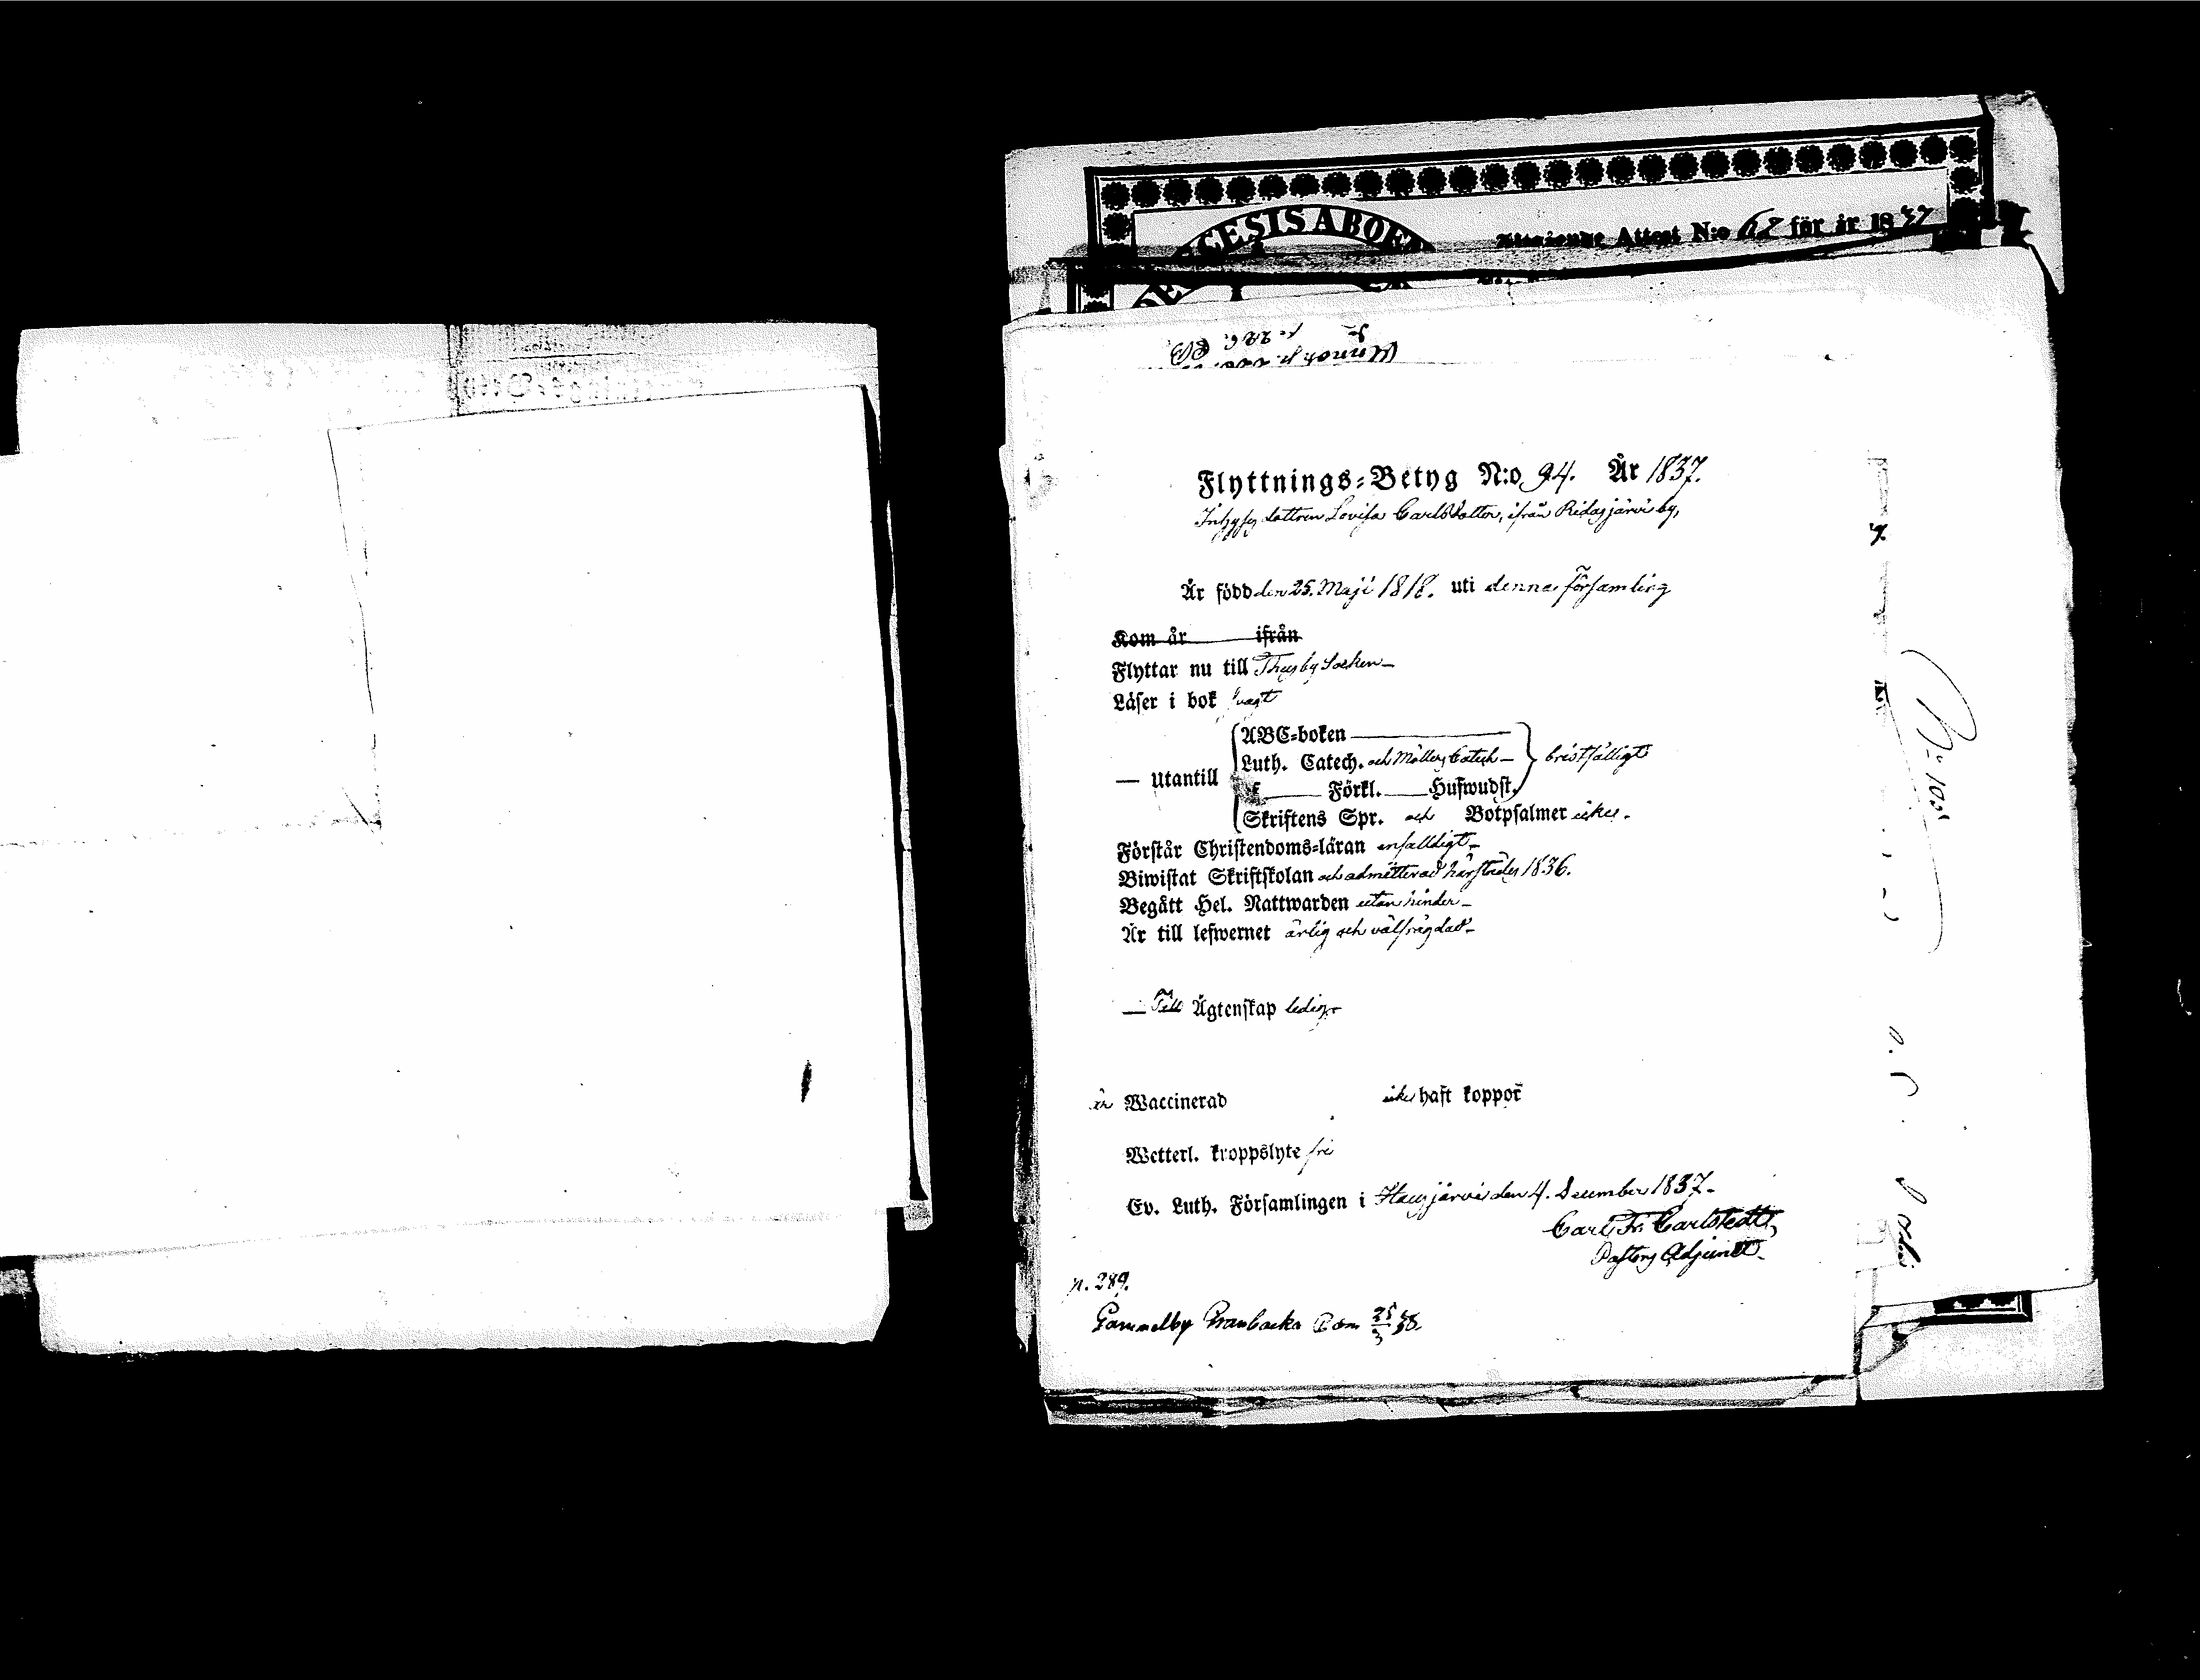 CESIS ABOEN
Attest N:o 62 för år 1837
Flyttnings-Betyg N:o 94. År 1837.
Inhyses dottren Lovisa Carlsdotter, ifrån Ridasjärvi by,
Är född den 25. Maji 1818. uti denna församling
Kom år ifrån
Flyttar nu till Thusby Socken
Läser i bok svagt
ABC-boken
Luth. Catech. och Möllers Catech
bristfälligt
— utantill
Förkl. Hufwudst.
Skriftens Spr. och Botpsalmer icke.
Förstår Christendoms-läran enfaldigt
Biwistat Skriftskolan och admitterad härstädes 1836.
Begått Hel. Nattwarden utan hinder
Är till lefwernet ärlig och välfrägdad
— Till Ägtenskap ledig
är Waccinerad icke haft koppor
Wetterl. kroppslyte fri
Ev. Luth. Församlingen i Hausjärvi den 4. December 1837.
Carl Fr. Carlstedt,
Pastors Adjunct.
p. 289.
Gammelby 25/3 38.